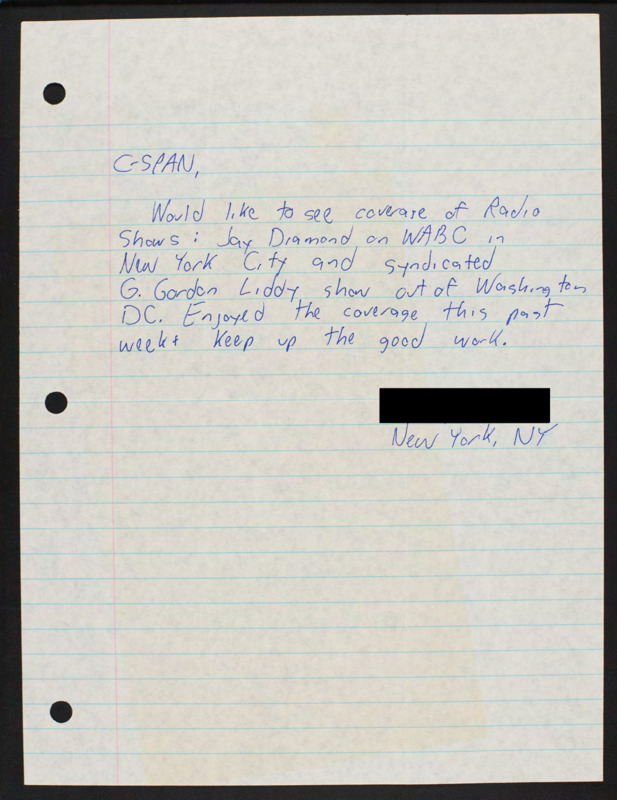 C-SPAN,
Would like to see coverage of Radio
Shows: Jay Diamond on WABC in
New York City and syndicated
G. Gordon Liddy show out of Washington
DC. Enjoyed the coverage this past
week + Keep up the good work.
New York, NY